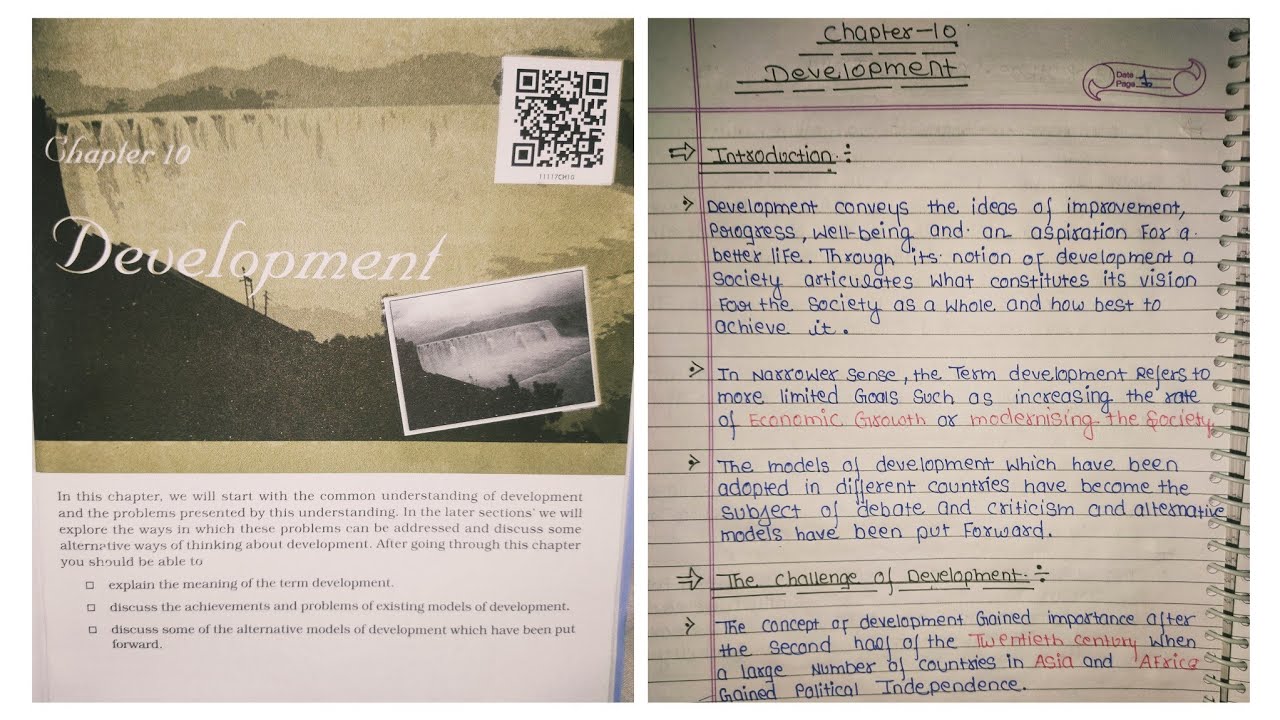 Chapter 10
Development
11117CH10
In this chapter, we will start with the common understanding of development
and the problems presented by this understanding. In the later sections' we will
explore the ways in which these problems can be addressed and discuss some
alternative ways of thinking about development. After going through this chapter
you should be able to
explain the meaning of the term development.
discuss the achievements and problems of existing models of development.
discuss some of the alternative models of development which have been put
forward.
Chapter-10
Development
Date
Page 1
⇒ Introduction:
Development conveys the ideas of improvement,
Progress, well-being and an aspiration For a
better life. Through its notion of development a
Society articulates what constitutes its vision
For the Society as a whole and how best to
achieve it.
In Narrower Sense, the Term development Refers to
more limited Goals Such as increasing the rate
of Economic Growth or modernising the Society.
The models of development which have been
adopted in different countries have become the
subject of debate and criticism and alternative
models have been put Forward.
⇒ The Challenge of Development:
The concept of development Gained importance after
the Second half of the Twentieth century when
a large Number of countries in Asia and Africa
Gained Political Independence.